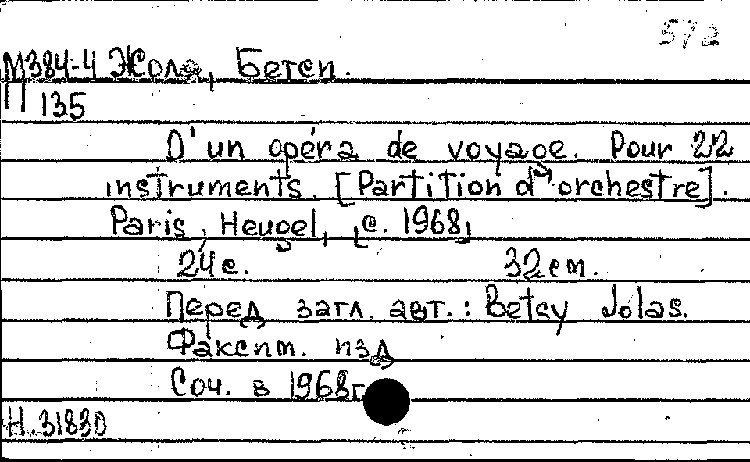 572
М384-4 Жола, Бетси.
П 135
D'un opéra de voyage. Pour 22
instruments. [Partition d'orchestre].
Paris, Heugel, [c. 1968]
24 с. 32 см.
Перед загл. авт.: Betsy Jolas.
Факсим. изд
Соч. в 1968г
Н.31830